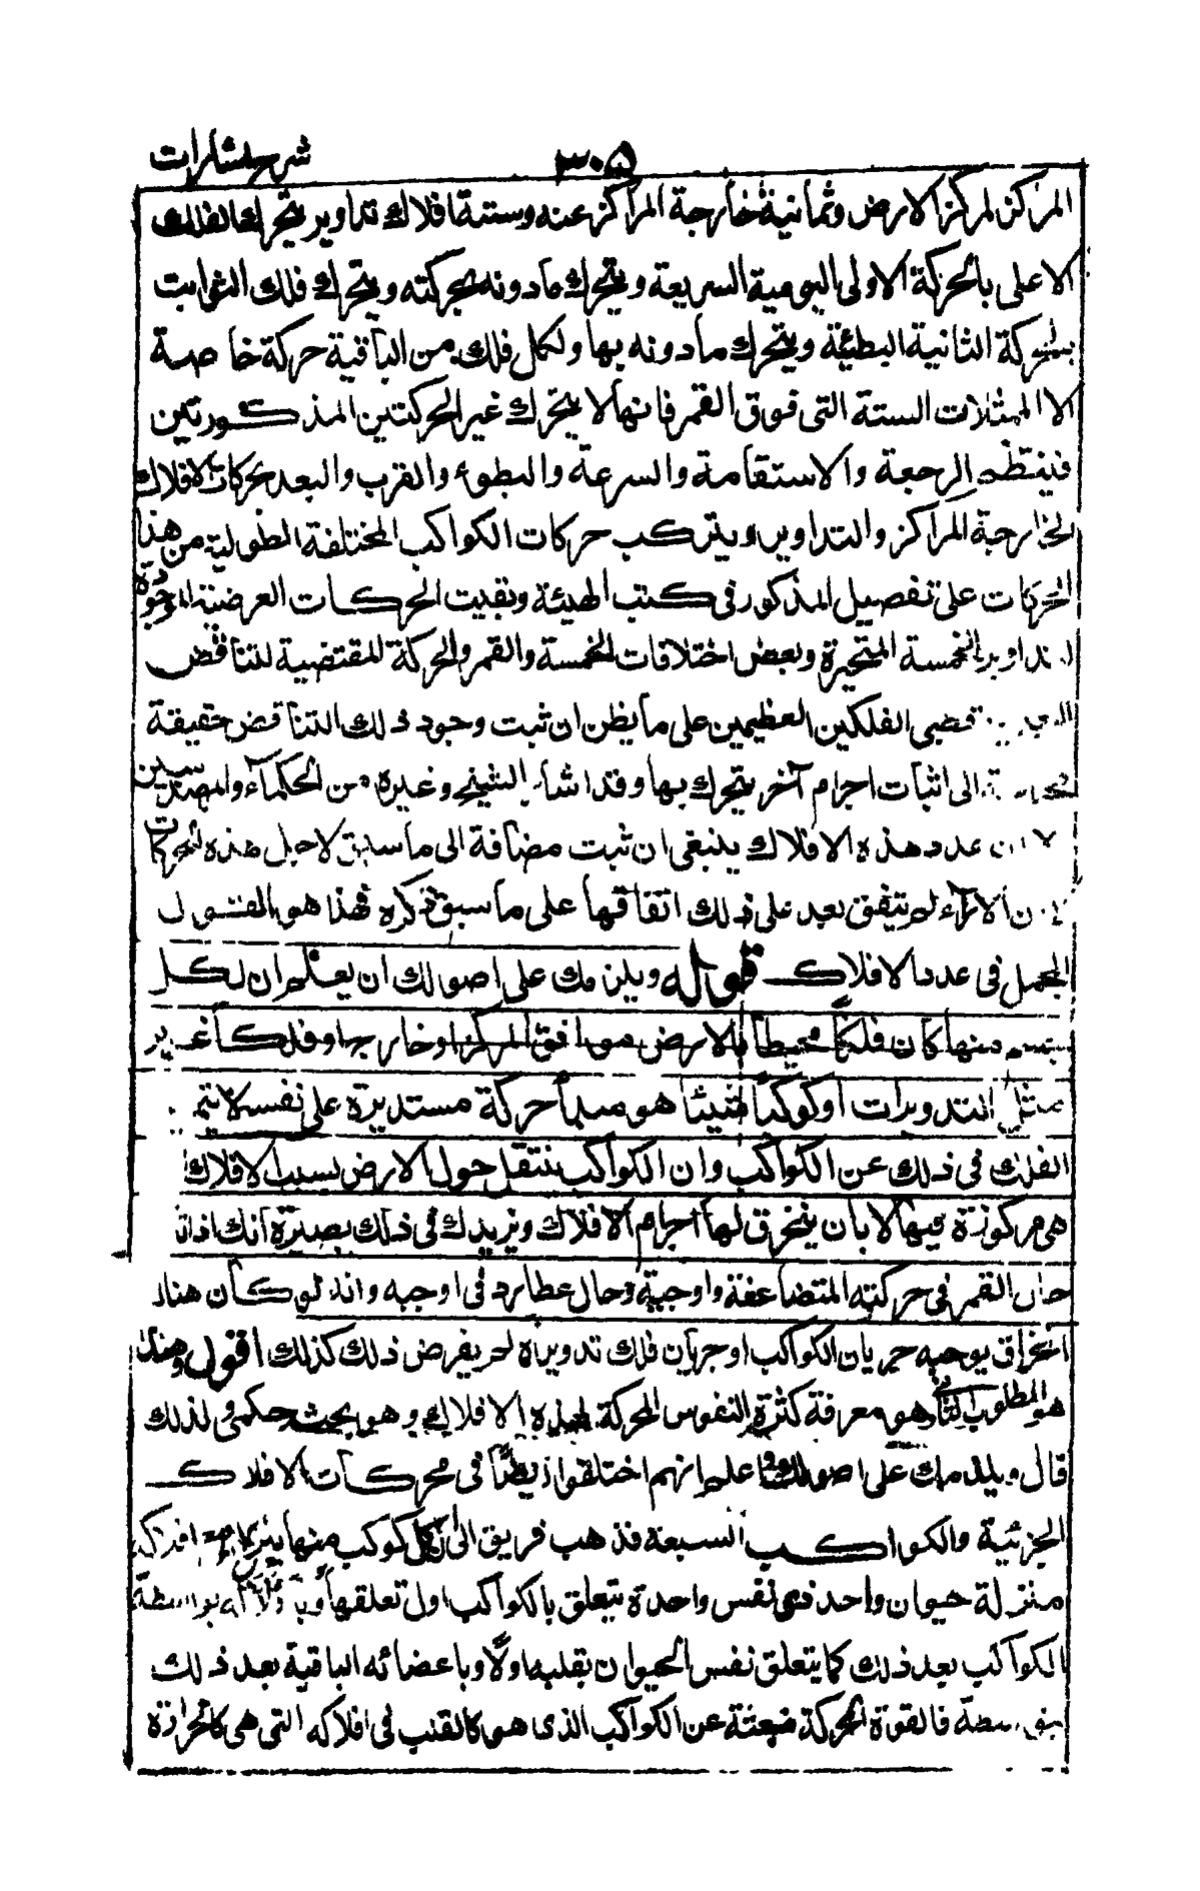 شرح اشارات
٣٠٥
المركز لمركز الارض وثمانية خارجة المراكز عنه وستة افلاك تداوير يتحرك الفلك
الاعلى بالحركة الاولى اليومية السريعة ويتحرك مادونه بحركته ويتحرك فلك الثوابت
بالحركة الثانية البطيئة ويتحرك مادونه بها ولكل فلك من الباقية حركة خاصة
الا الممثلات الستة التى فوق القمر فانها لا يتحرك غير الحركتين المذكورتين
فينتظم الرجعة والاستقامة والسرعة والبطوء والقرب والبعد بحركات الافلاك
الخارجة المراكز والتداوير ويتركب حركات الكواكب المختلفة الطولية من هذه
الحركات على تفصيل المذكور فى كتب الهيئة وبقيت الحركات العرضية الموجودة
لتداوير الخمسة المتحيرة وبعض اختلافات الخمسة والقمر والحركة المقتضية للتناقص
قطبى الفلكين العظيمين على ما يظن ان ثبت وجود ذلك التناقص حقيقة
محتاجة الى اثبات اجرام آخر يتحرك بها وقد اشار الشيخ وغيره من الحكماء والمهندسين
عدد هذه الافلاك ينبغى ان ثبت مضافة الى ما سبق لاجل هذه الحركات
الآراء لم يتفق بعد على ذلك اتفاقها على ما سبق ذكره فهذا هو القول
المجمل فى عدد الافلاك قوله ويلزمك على اصولك ان يعلم ان لكل
جسم منها كان فلكا محيطا بالارض موافق المركز او خارجها وفلكا غير
مثل التدويرات او كوكبا شيئا هو مبدأ حركة مستديرة على نفسه لا يتميز
الفلك فى ذلك عن الكواكب وان الكواكب ينتقل حول الارض بسبب الافلاك
هى مركوزة فيها لا بان ينخرق لها اجرام الافلاك ويزيدك فى ذلك بصيرة انك اذا
حال القمر فى حركته المتضاعفة واوجيه وحال عطارد فى اوجيه وانه لو كان هناك
انخراق يوجبه جريان الكواكب او جريان فلك تدويره لم يفرض ذلك كذلك اقول وهذا
هو المطلوب الثانى وهو معرفة كثرة النفوس المحركة لهذه الافلاك وهو بحث حكمى ولذلك
قال ويلزمك على اصولك واعلم انهم اختلفوا ايضا فى محركات الافلاك
الجزئية والكواكب السبعة فذهب فريق الى ان كل كوكب منها ينزل مع افلاكه
منزلة حيوان واحد ذى نفس واحدة يتعلق بالكواكب اول تعلقها وبافلاكه بواسطة
الكواكب بعد ذلك كما يتعلق نفس الحيوان بقلبه اولا وباعضائه الباقية بعد ذلك
فالقوة المحركة منبعثة عن الكواكب الذى هو كالقلب فى افلاكه التى هى كالجوارح